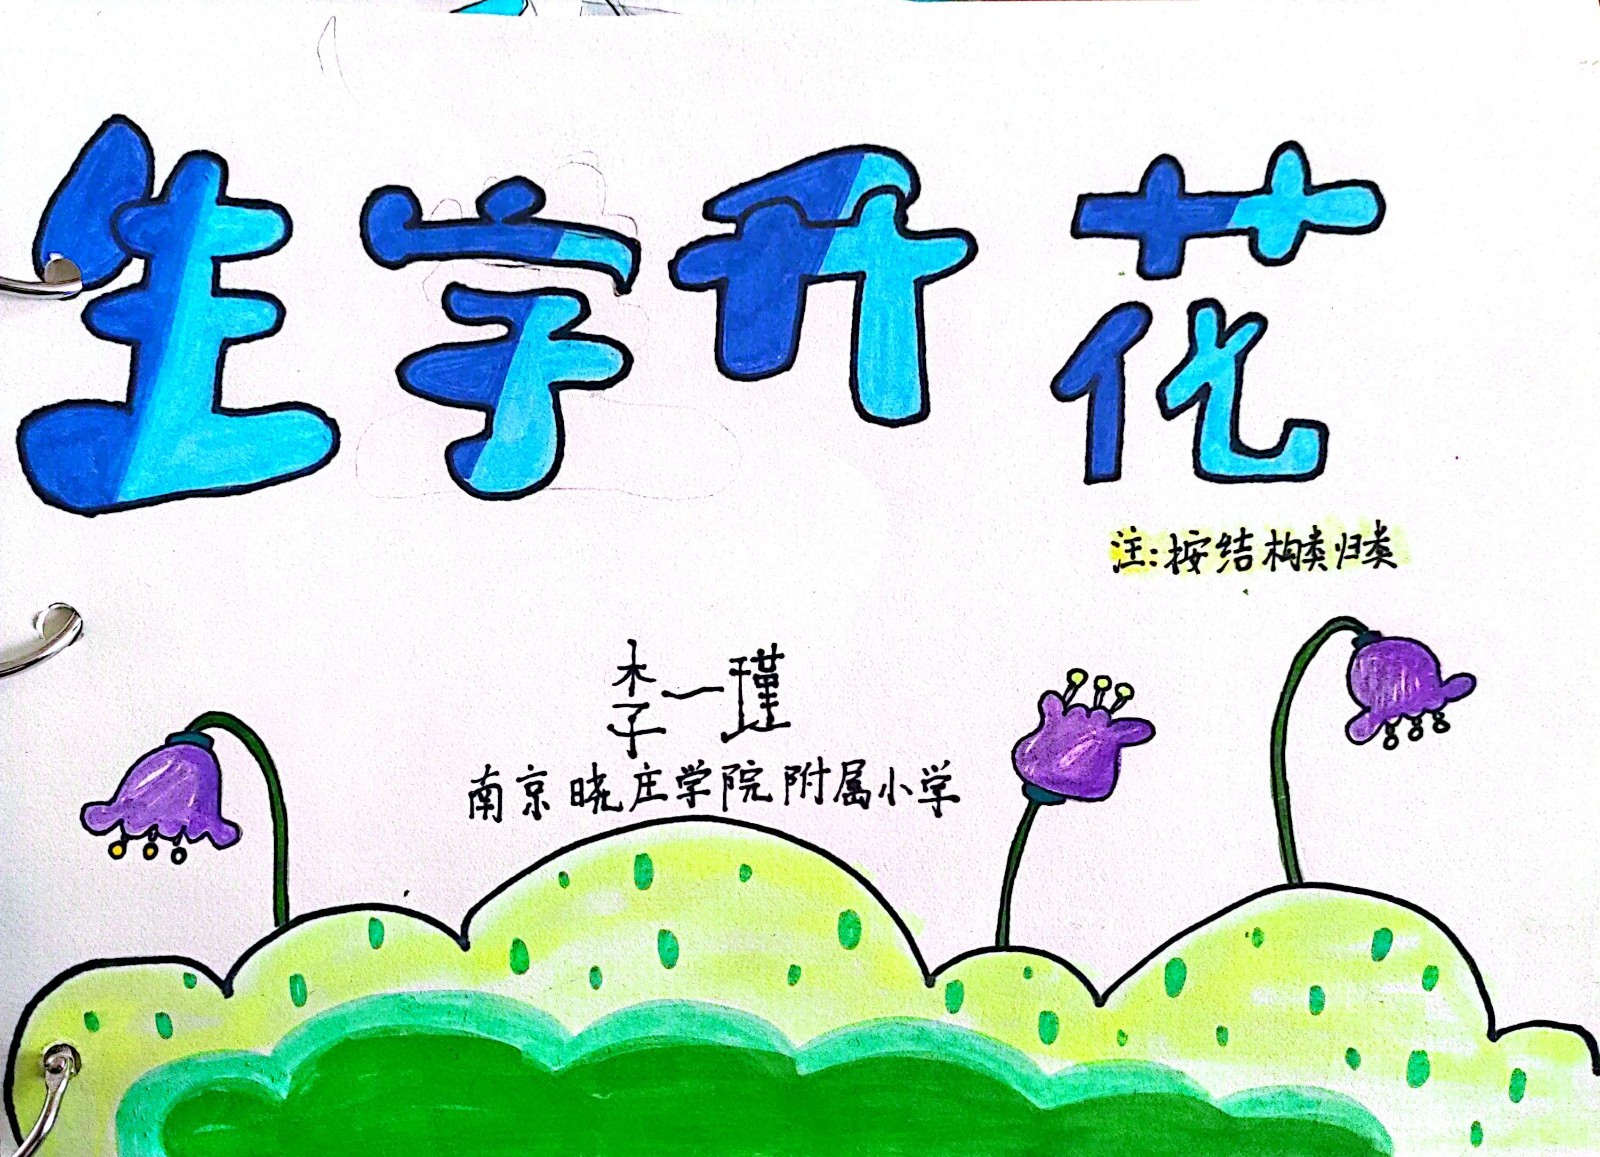 生字升花
注:按结构类归类
李一瑾
南京晓庄学院附属小学